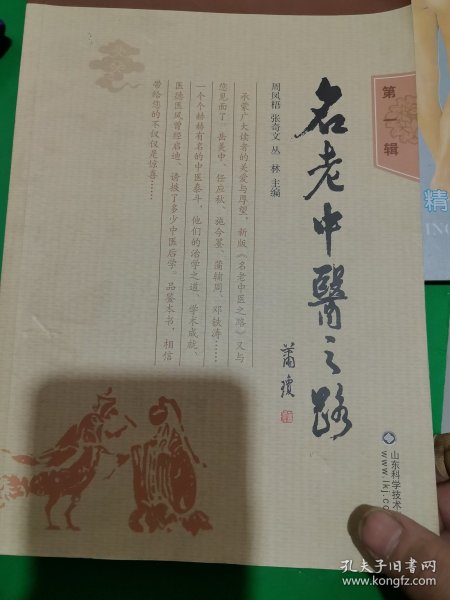 名老中醫之路
萧璜
第一辑
周凤梧 张奇文 丛 林 主编
承蒙广大读者的关爱与厚望，新版《名老中医之路》又与
您见面了。岳美中、任应秋、施今墨、蒲辅周、邓铁涛……
一个个赫赫有名的中医泰斗，他们的治学之道、学术成就、
医德医风曾经启迪、诱掖了多少中医后学。品鉴本书，相信
带给您的不仅仅是惊喜……
山东科学技术
www.lkj.co
精
ING
孔夫子旧书网
www.kongfz.com